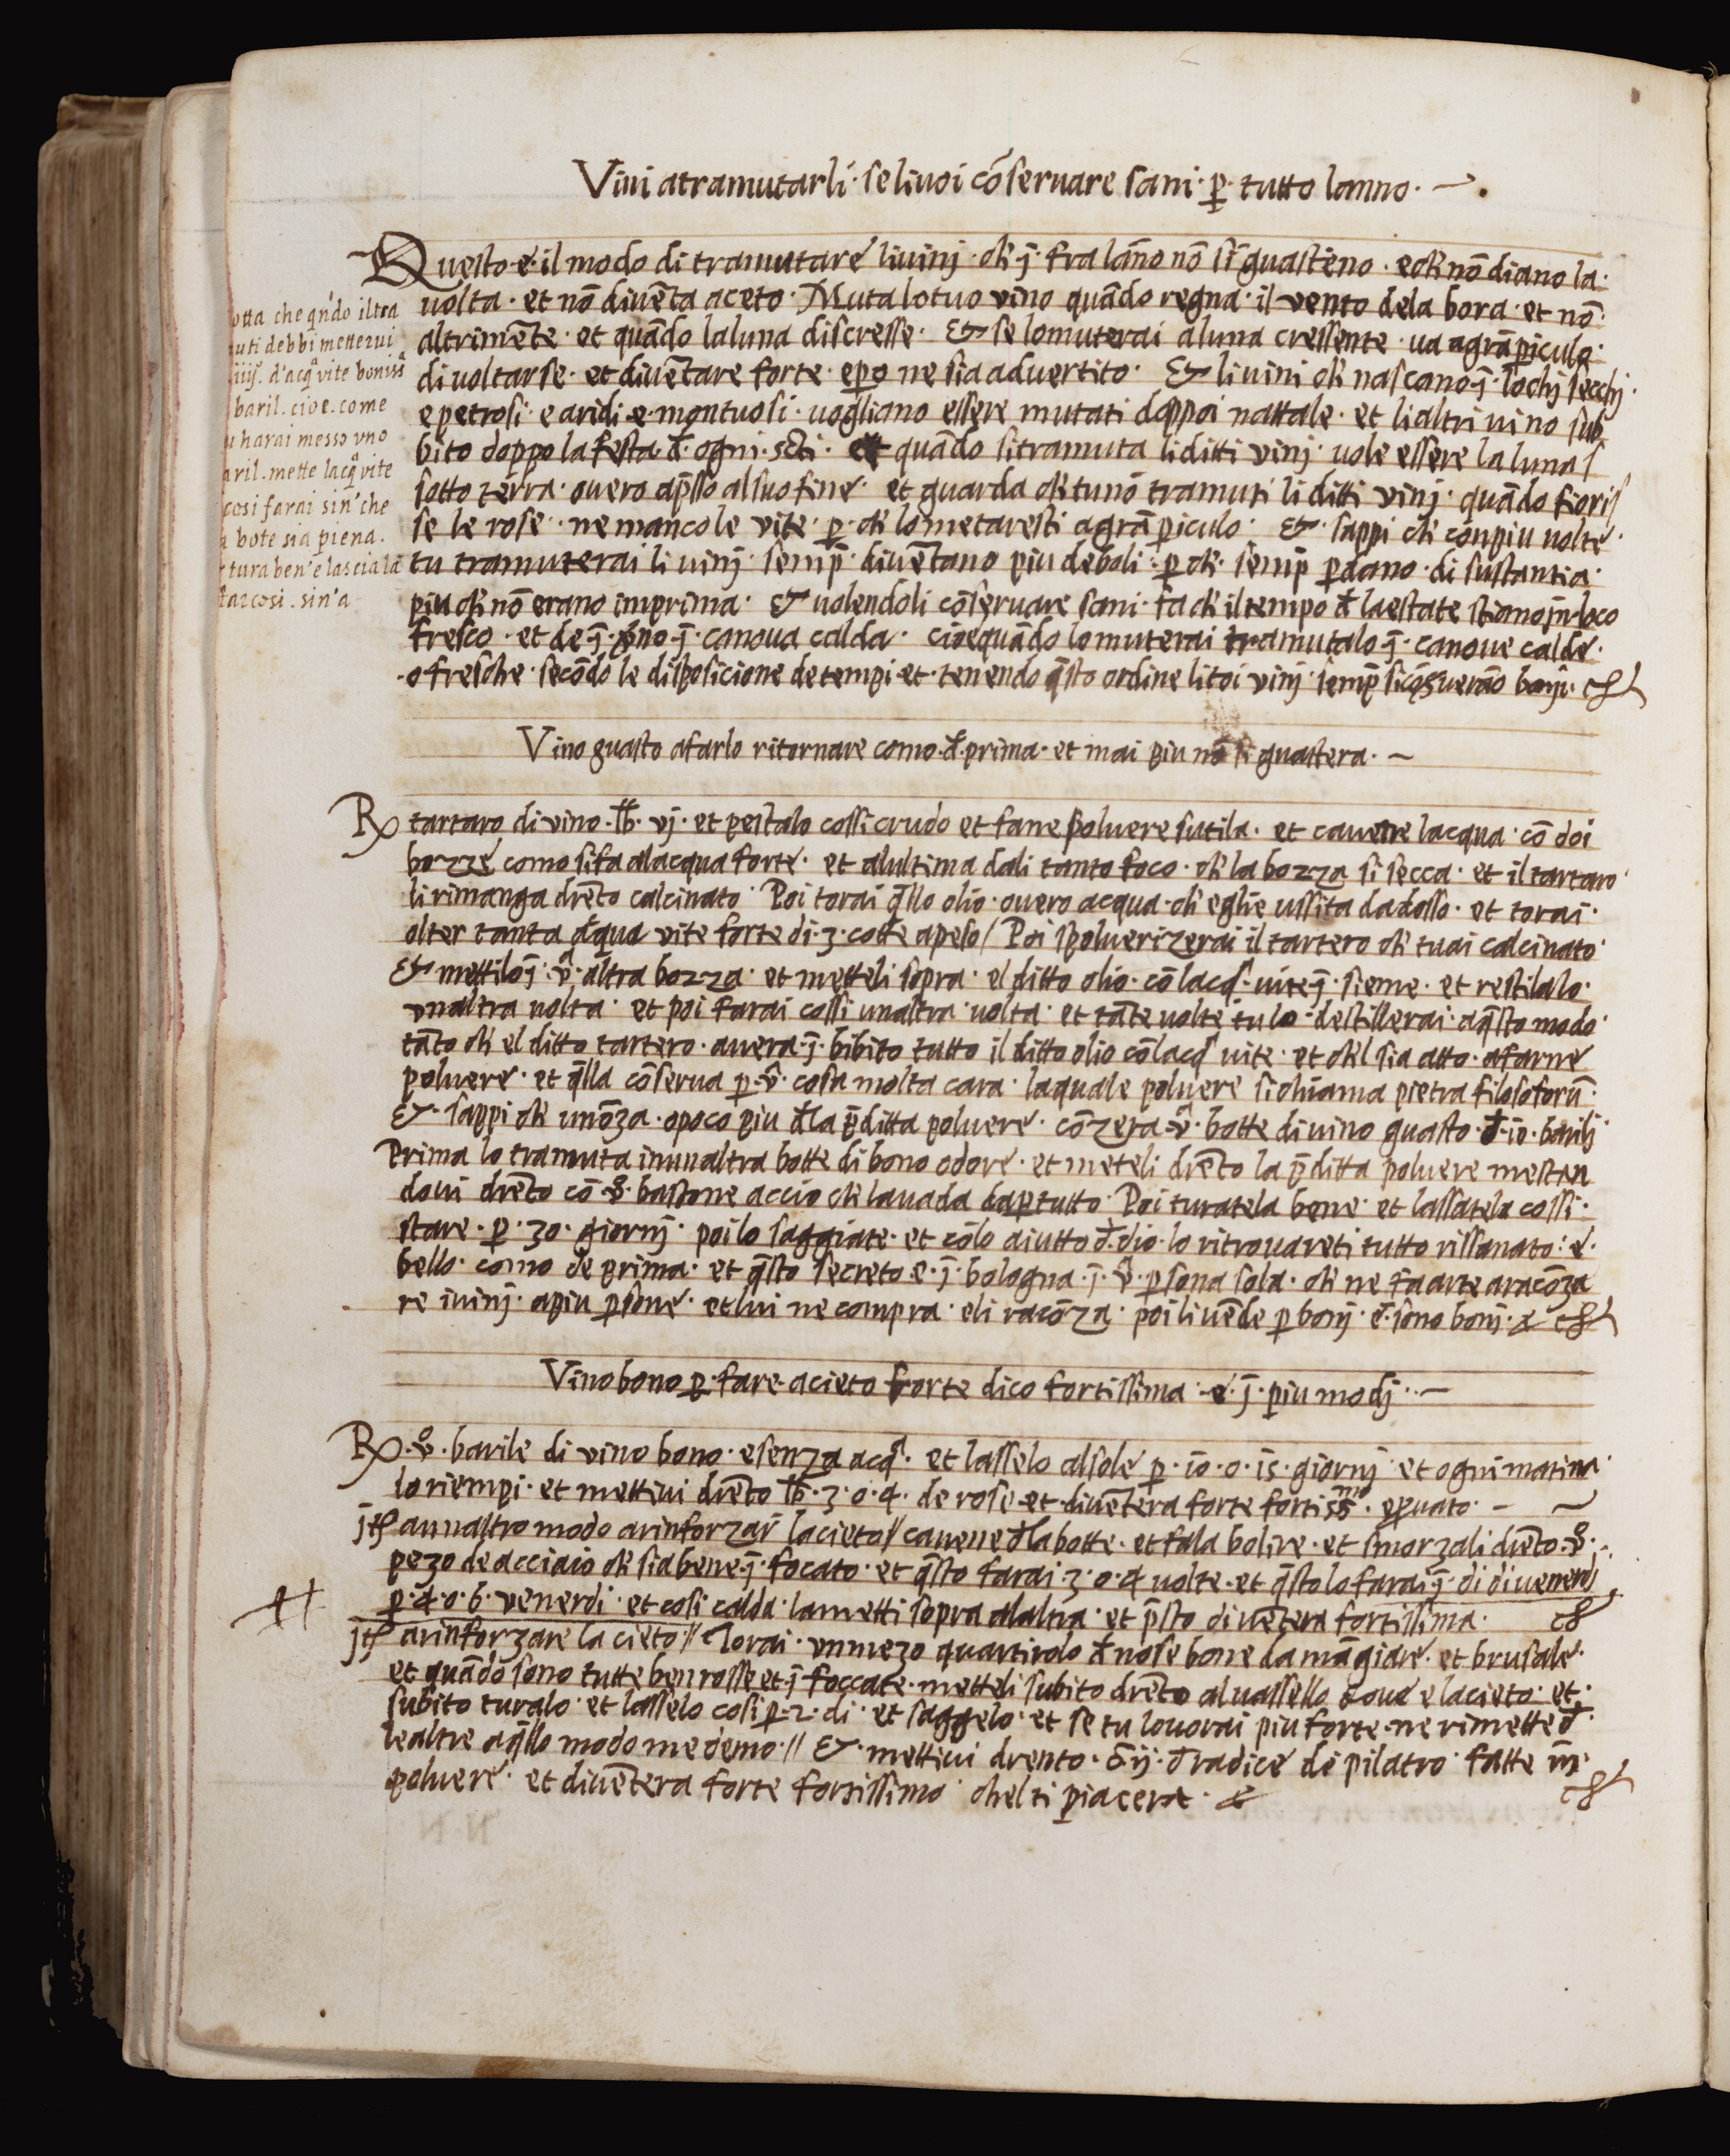 Vini atramutarli · se li voi cõservare sani · p̱ · tutto lanno · ~ .
Questo · e · il modo di tramutare li vinj · ch' j̄ · fra lãno nõ si guasteno · e ch' nõ diano la ·
volta · et nõ divẽta aceto · Muta lo tuo vino quãdo regna · il vento dela bora · et nõ ·
altrimẽte · et quãdo la luna discresse · Et se lo muterai a luna cressente · va a grã piculo ·
di voltarse · et divẽtare forte · epo ne sia advertito · Et li vini ch' nascano · j̄ · lochj secchj ·
e petrosi · e aridi · e · montuosi · vogliano essere mutati dappoi nattale · et li altri vino sub
bito doppo la festa · đ · ogni · scti · et quãdo si tramuta li ditti vinj · vole essere la luna s
sotto terra · overo ap̄sso al suo fine · et guarda ch' tu nõ tramuti li ditti vinj · quãdo fioris
se le rose · ne manco le vite · p̱ · ch' lo metaresti a grã piculo · Et · sappi ch' cõ piu volte ·
tu tramuterai li vinj · semp̄ · divẽtano piu deboli · p̱ ch' · semp̄ p̱dano · di sustantia ·
piu ch' nõ erano imprima · Et volendoli cõservare sani · fa ch' il tempo đ la estate stiano j̄ loco
fresco · et de j̄ · vno · j̄ · canova calda · cioe quãdo lo muterai tramutalo j̄ · canove calde ·
· o fresche · secõdo le disposicione de tempi · et · tenendo q̄sto ordine li toi vinj · semp̄ si cõserverão bonj ·
otta che qn'do il tra
uti debbi mettervi
iiij . d'acq̃ vite boniss̃
baril . cioe . come
u harai messo vno
aril . mette lacq̃ vite
cosi farai sin' che
a bote sia piena .
tura ben' e lasciala
tar cosi . sin'a
Vino guasto a farlo ritornare como · đ · prima · et mai piu nõ si guastera · ~
Rx tartaro di vino · lb · vj · et pestalo cossi crudo et fane polvere sutila · et cavene lacqua · cõ doi
bozze como si fa alacqua forte · et alultima dali tanto foco · ch' la bozza si secca · et il tartaro
li rimanga drẽto calcinato · Poi torai q̄llo olio · overo acqua · ch' eglie ussita dadosso · et torai ·
olter tanta aqua vite forte di · 3 · cotte a peso / Poi spolverizerai il tartero ch' tu ai calcinato ·
Et mettilo j̄ · vª altra bozza · et metteli sopra · el ditto olio · cõ lacqª · vite j̄ · sieme · et restilalo ·
vnaltra volta · et poi farai cossi unaltra volta · et tãte volte tu lo · destillerai · a q̄sto modo ·
tãto ch' el ditto tartero · avera · j̄ · bibito tutto il ditto olio cõ lacqª vite · et ch'l sia atto · a farne
polvere · et q̄lla cõserva p̱ · vª · cosa molta cara · laquale polvere si chiama pietra filosoforũ ·
Et · sappi ch' unõza · o poco piu đ la p̄ditta polvere · cõzera · vª · botte di vino guasto · đ · io · barilj
Prima lo tramuta in unaltra botte di bono odore · et meteli drẽto la p̄ditta polvere mestan
dovi drẽto cõ · vº · bastone accio ch' la vada dap̱tutto · Poi turatela bene · et lassatela cossi ·
stare · p̱ · 30 · giornj · poi lo saggiate · et cõlo aiutto đ · dio · lo ritrovareti tutto rissanato · e ·
bello · como de prima · et q̄sto secreto · e · j̄ · bologna · j̄ · vª · p̱sona sola · ch' ne fa arte a racõza
re i vinj · a piu p̱sone · et lui ne compra · e li racõza · poi li vẽde p̱ bonj · e · sono bonj ·
Vino bono p̱ · fare · acieto forte dico fortissima · e · j̄ · piu modj · ~
Rx · vº · barile di vino bono · e senza acqª · et lasselo al sole p̱ · io · o · is · giornj · et ogni matina ·
lo riempi · et mettivi drẽto lb · 3 · o · 4 · de rose · et · divẽtera forte fortissᵐᵒ · e p̱vato · ~
jtē a unaltro modo a rinforzar' lacieto // cavene đ la botte · et falla bolire · et smorzali drẽto · vº ·
pezo de acciaio ch' sia bene · j̄ · focato · et q̄sto farai · 3 · o · 4 volte · et q̄sto lo farai j̄ · di di venerdj
p̱ · 4 · o · 6 · venerdi · et cosi calda · la metti sopra alaltra · et p̄sto divẽtera fortissima ·
jtē a rinforzare lacieto // Torai · vn mezo quartirolo đ nose bone da mãgiare · et brusale ·
et quãdo sono tutte ben rosse et j̄ foccate · metteli subito drẽto al vassello dove e lacieto · et ·
subito turalo · et lasselo cosi p̱ · 2 · di · et saggelo · et se tu lo vorai piu forte · ne rimette đ ·
le altre a q̄llo modo medemo · // Et · mettivi drento · ℥ ij · đ radice de pilatro · fatte in ·
polvere · et divẽtera forte fortissimo · chel ti piacera ·